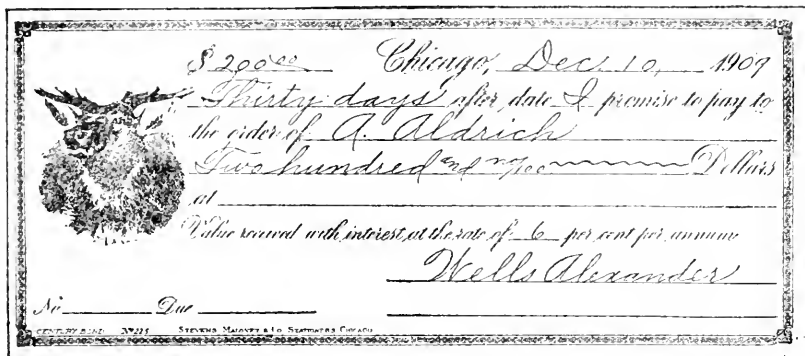 $200.00 Chicago, Dec. 10, 1909
Thirty days after date I promise to pay to
the order of A. Aldrich
Two hundred and no/100 Dollars
at
Value received with interest at the rate of 6 per cent per annum
Wells Alexander
No. Due
CENTURY BOND No 225 STEVENS, MALONEY & CO. STATIONERS CHICAGO